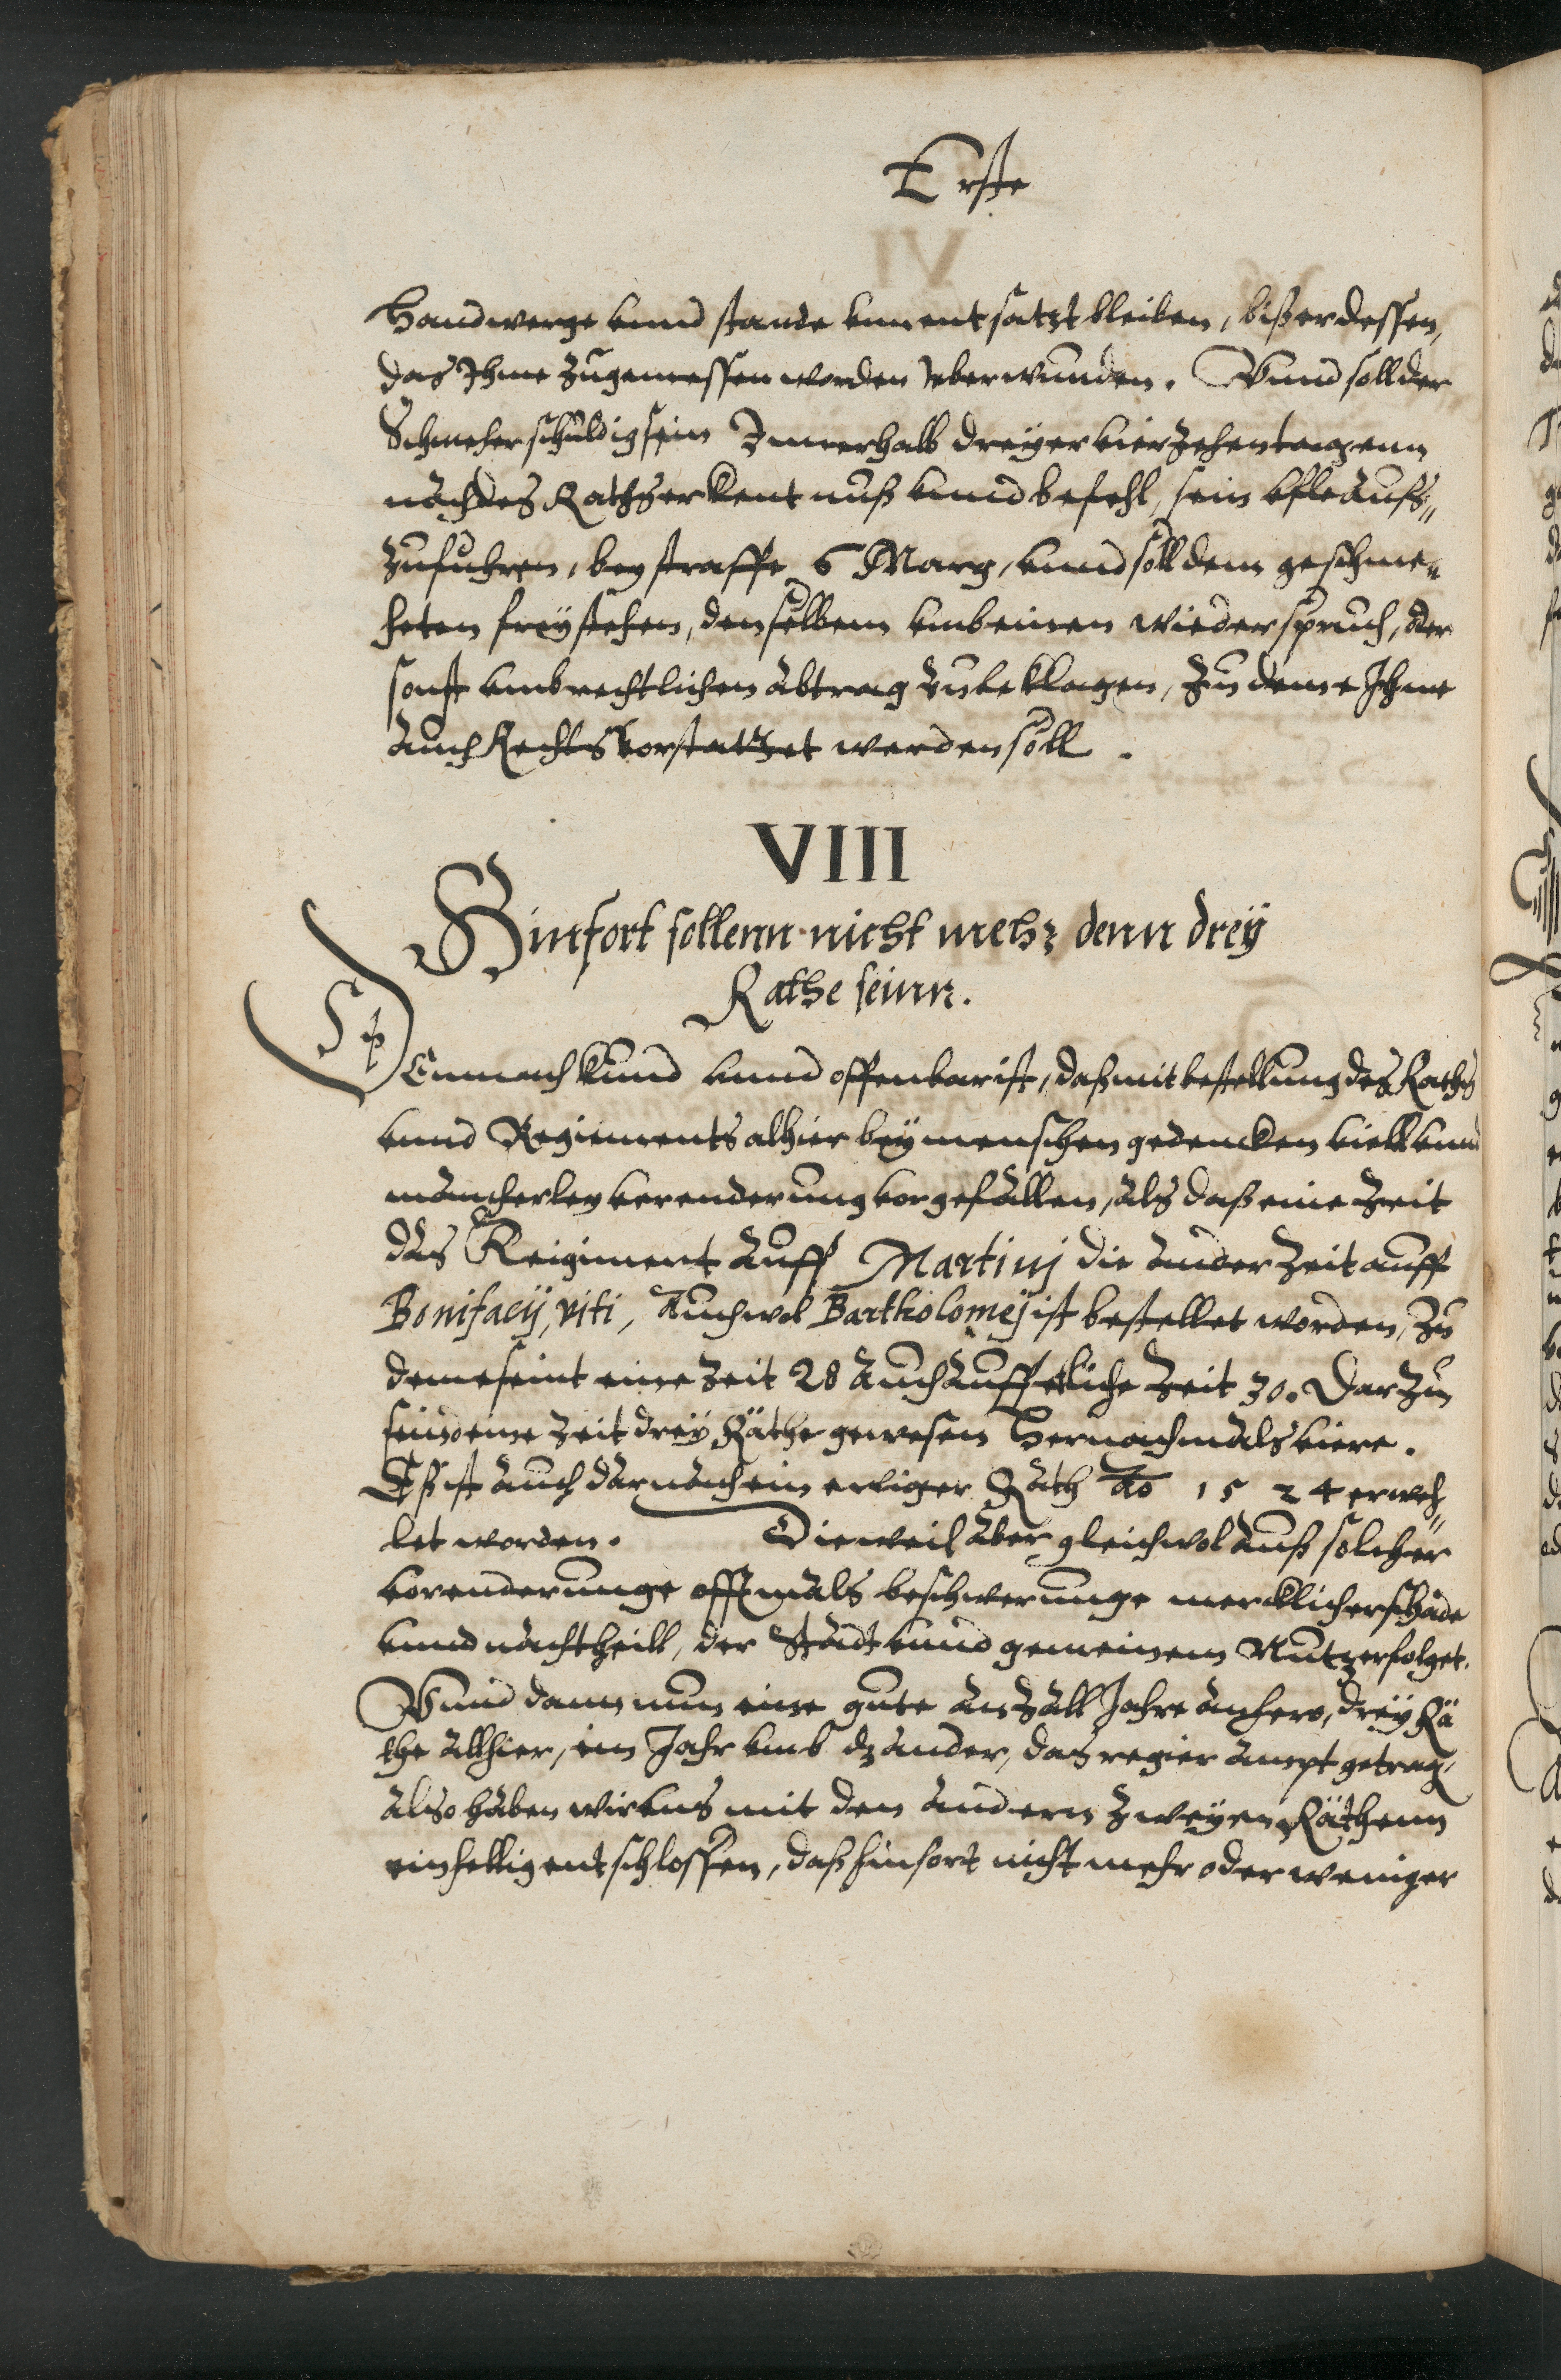 Erste
Handwerge vnnd stande vnnentsatzt bleiben, biß er dessen,
das Ihme zugemessen worden veberwunden. Vnnd soll der
Schmeher schuldig sein Innerhalb dreyer vierzehen tagenn
nach des Raths erkentnuß vnnd befehl, sein sache aus¬
zufuhren, bey straffe 6 Marg, vnnd soll dem geschme¬
heten frey stehen, denselbenn vmb einen wiederspruch, oder
sonst vmb rechtlichen abtrag zubeklagen, Zu deme Ihme
auch Rechts vorstattet werden soll.
VIII
Hinfort sollenn nicht mehr denn drey
Rathe seinn.
Dennach kund vnnd offenbar ist, daß mit bestellung des Raths
vnnd Regiments alhier bey menschen gedencken viell vnnd
mancherley verenderung vorgefallen, als daß eine zeit
das Reigiment auff Martinj die ander zeit auff
Bonifacij, viti, Auch wol Bartholomej ist bestellet worden, Zu
deme seint eine zeit 28 auch auff etliche zeit 30. Darzu
seind eine zeit drey Räthe gewesen hernachmals viere.
Eß ist auch darnach ein ewiger Rath Ao 1524 erweh¬
let worden. Dieweil aber gleichwol auß solcher
vorenderunge offtmals beschwerunge mercklicher schade
vnnd nachtheill, der Stadt vnnd gemeinem Nutz erfolget.
Vnnd dann nun eine gute anzall Jahre anhero, drey Rä
the allhier, ein Jahr vmb dz ander, das regier ampt getrag.
also haben wir vns mit den andern zweyen Räthenn
einhellig entschlossen, daß hinfort nicht mehr oder weniger